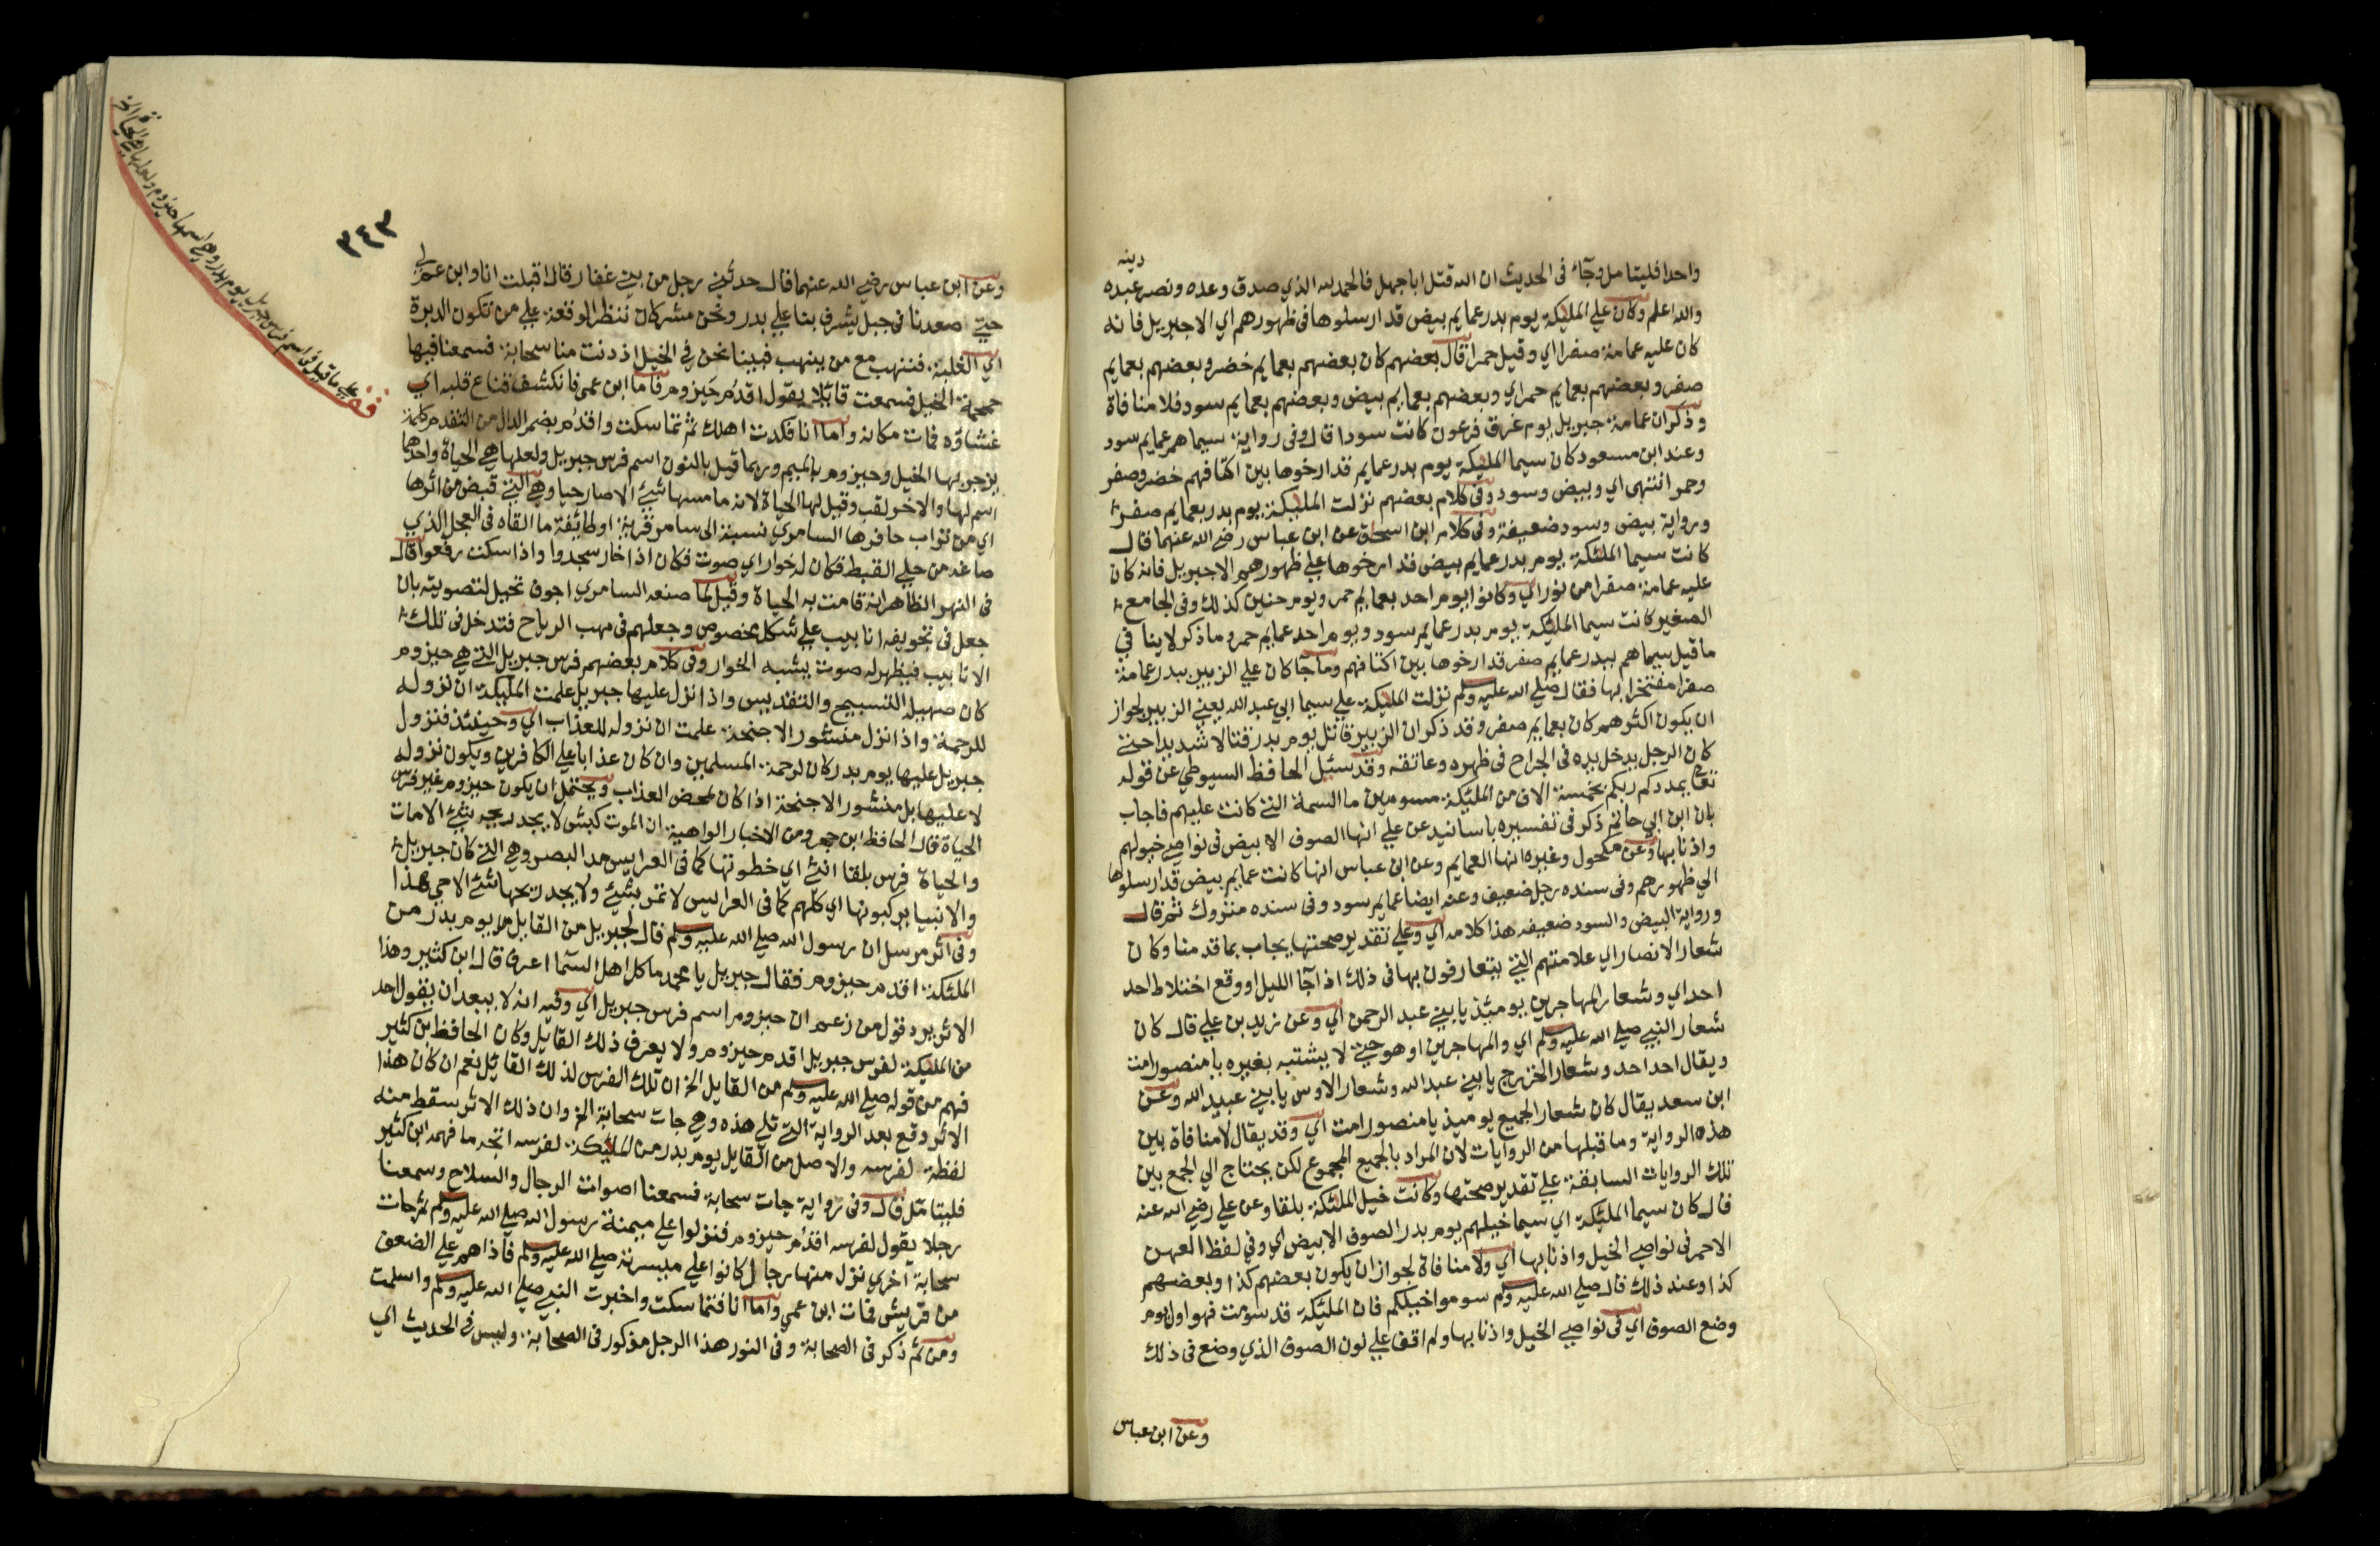 واحدا فليتامل وجآء فى الحديث ان الله قتل اباجهل فالحمد لله الذي صدق وعده ونصر عبده
دينه
والله اعلم وكان علي المليكة يوم بدر عمايم بيض قد ارسلوها فى ظهورهم اي الا جبريل فانه
كان عليه عمامة صفرا اي وقيل حمرا قال بعضهم كان بعضهم بعمايم خضر وبعضهم بعمايم
صفر وبعضهم بعمايم حمراي وبعضهم بعمايم بيض وبعضهم بعمايم سود فلا منافاة
وذكر ان عمامة جبريل يوم غرق فرعون كانت سودا قال وفى رواية سيماهم عمايم سود
وعند ابن مسعود كان سيما المليكة يوم بدر عمايم قد ارخوها بين اكتافهم خضر وصفر
وحمر انتهى اي وبيض وسود وفى كلام بعضهم نزلت المليكة يوم بدر بعمايم صفر
ورواية بيض وسود ضعيفة وفى كلام ابن اسحق عن ابن عباس رضي الله عنهما قال
كانت سيما المليكة يوم بدر عمايم بيض قد ارخوها علي ظهورهم الا جبريل فانه كان
عليه عمامة صفرا من نور اي وكانوا يوم احد بعمايم حمر ويوم حنين كذلك وفى الجامع
الصغير كانت سيما المليكة يوم بدر عمايم سود ويوم احد عمايم حمر وما ذكر لا ينافي
ما قيل سيماهم ببدر عمايم صفر قد ارخوها بين اكتافهم وما جا كان علي الزبير ببدر عمامة
صفرا مفتخرا بها فقال صلي الله عليه وسلم نزلت المليكة علي سيما ابي عبد الله يعني الزبير لجواز
ان يكون اكثرهم كان بعمايم صفر وقد ذكر ان الزبير قاتل يوم بدر قتالا شديدا حتي
كان الرجل يدخل يده فى الجراح فى ظهره وعاتقه وقد سئل الحافظ السيوطي عن قوله
تعالى يمددكم ربكم بخمسة الاف من المليكة مسومين ما السمة التي كانت عليهم فاجاب
بان ابن ابي حاتم ذكر فى تفسيره باسانيد عن علي انها الصوف الابيض فى نواصي خيولهم
واذنابها وعن مكحول وغيره انها العمايم وعن ابن عباس انها كانت عمايم بيض قد ارسلوها
الي ظهورهم وفى سنده رجل ضعيف وعنه ايضا عمايم سود وفى سنده متروك ثم قال
ورواية البيض والسود ضعيفه هذا كلامه اي وعلي تقدير صحتها يجاب بما قدمنا وكان
شعار الانصار اي علامتهم التي يتعارفون بها فى ذلك اذا جآ الليل او وقع اختلاط احد
احد اي وشعار المهاجرين يوميئذ يا بني عبد الرحمن اي وعن زيد بن علي قال كان
شعار النبي صلي الله عليه وسلم اي والمهاجرين او هو حتي لا يشتبه بغيره يا منصور امت
ويقال احد احد وشعار الخزرج يا بني عبد الله وشعار الاوس يا بني عبيد الله وعن
ابن سعد يقال كان شعار الجميع يوميذ يا منصور امت اي وقد يقال لا منافاة بين
هذه الرواية وما قبلها من الروايات لان المراد بالجميع المجموع لكن يحتاج الي الجمع بين
تلك الروايات السابقة علي تقدير صحتها وكانت خيل المليكة بلقا وعن علي رضي الله عنه
قال كان سيما المليكة اي سيما خيلهم يوم بدر الصوف الابيض اي وفي لفظ العهن
الاحمر فى نواصي الخيل واذنابها اي ولا منافاة لجواز ان يكون بعضهم كذا وبعضهم
كذا وعند ذلك قال صلي الله عليه وسلم سوموا خيلكم فان المليكة قد سومت فهو اول يوم
وضع الصوف اي فى نواصي الخيل واذنابها ولم اقف علي لون الصوف الذي وضع فى ذلك
وعن ابن عباس
٣٤٣
وعن ابن عباس رضي الله عنهما قال حدثني رجل من بني غفار قال اقبلت انا وابن عم لي
حتي اصعدنا فى جبل يشرف بنا علي بدر ونحن مشركان ننظر الوقعة علي من تكون الدبرة
اي الغلبة فننتهب مع من ينهب فبينا نحن في الخيل اذ دنت منا سحابة فسمعنا فيها
حمحمة الخيل فسمعت قائلا يقول اقدم حيزوم فاما ابن عمي فانكشف قناع قلبه اي
غشاؤه فمات مكانه واما انا فكدت اهلك ثم تماسكت واقدم بضم الدال من التقدم كلمة
يزجر بها الخيل وحيزوم بالميم وربما قيل بالنون اسم فرس جبريل ولعلها هي الحياة واحدهما
اسم لها والاخر لقب وقيل لها الحياة لانه ما مسها شيئ الا صار حيا وهي التي قبض من اثرها
اي من تراب حافرها السامري نسبة الى سامر قرية او طائفة ما القاه فى العجل الذي
صاغه من حلي القبط فكان له خوار اي صوت فكان اذا خار سجدوا واذا سكت رفعوا قال
فى النهر الظاهر انه قامت به الحياة وقيل لما صنعه السامري اجوف تحيل لتصويته بان
جعل فى تجويفه انابيب علي شكل مخصوص وجعلهم فى مهب الرياح فتدخل فى تلك
الانابيب فيظهر له صوت يشبه الخوار وفى كلام بعضهم فرس جبريل التي هي حيزوم
كان صهيله التسبيح والتقديس واذا نزل عليها جبريل علمت المليكة ان نزوله
للرحمة واذا نزل منشور الاجنحة علمت ان نزوله للعذاب اي وحينئذ فنزول
جبريل عليها يوم بدر كان لرحمة المسلمين وان كان عذابا علي الكافرين ويكون نزوله
لا عليها بل منشور الاجنحة اذا كان لمحض العذاب ويحتمل ان يكون حيزوم غير فرس
الحياة قال الحافظ ابن حجر ومن الاخبار الواهية ان الموت كبش لا يجد ريحه شيئ الا مات
والحياة فرس بلقا انثي اي خطوتها كما فى العرايس مد البصر وهي التي كان جبريل
والانبيا يركبونها اي كلهم كما فى العرايس لا تمر بشيئ ولا يجد ريحها شئ الا حي هذا
وفى اثر مرسل ان رسول الله صلي الله عليه وسلم قال لجبريل من القايل يوم بدر من
المليكة اقدم حيزوم فقال جبريل يا محمد ما كل اهل السما اعرف قال ابن كثير وهذا
الاثر يرد قول من زعم ان حيزوم اسم فرس جبريل اي وفيه انه لا يبعد ان يقول احد
من المليكة لفرس جبريل اقدم حيزوم ولا يعرف ذلك القايل وكان الحافظ ابن كثير
فهم من قوله صلي الله عليه وسلم من القايل الخ ان تلك الفرس لذلك القائل نعم ان كان هذا
الاثر وقع بعد الرواية التي تلي هذه وهي جات سحابة الخ وان ذلك الاثر سقط منه
لفظة لفرسه والاصل من القايل يوم بدر من المليكة لفرسه اتجه ما فهمه ابن كثير
فليتامل قال وفى رواية جات سحابة فسمعنا اصوات الرجال والسلاح وسمعنا
رجلا يقول لفرسه اقدم حيزوم فنزلوا علي ميمنة رسول الله صلي الله عليه وسلم ثم جات
سحابة اخري نزل منها رجال كانوا علي ميسرته صلي الله عليه وسلم فاذا هم علي الضعف
من قريش فمات ابن عمي واما انا فتماسكت واخبرت النبي صلي الله عليه وسلم واسلمت
ومن ثم ذكر فى الصحابة وفى النور هذا الرجل مذكور فى الصحابة وليس في الحديث اي
قف علي ما قيل فى اسم فرس جبريل يوم بدر وهي اسمها حيزوم ولعلها هي الحياة